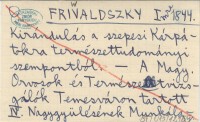 FRIVALDSZKY I. 1844.
Kirándulás a szepesi Kárpá-
tokra természettudományi
szempontból — A Magy.
Orvosok és Természetvizs-
gálók Temesváron tartott
IV. Nagygyűlésének Munkála-